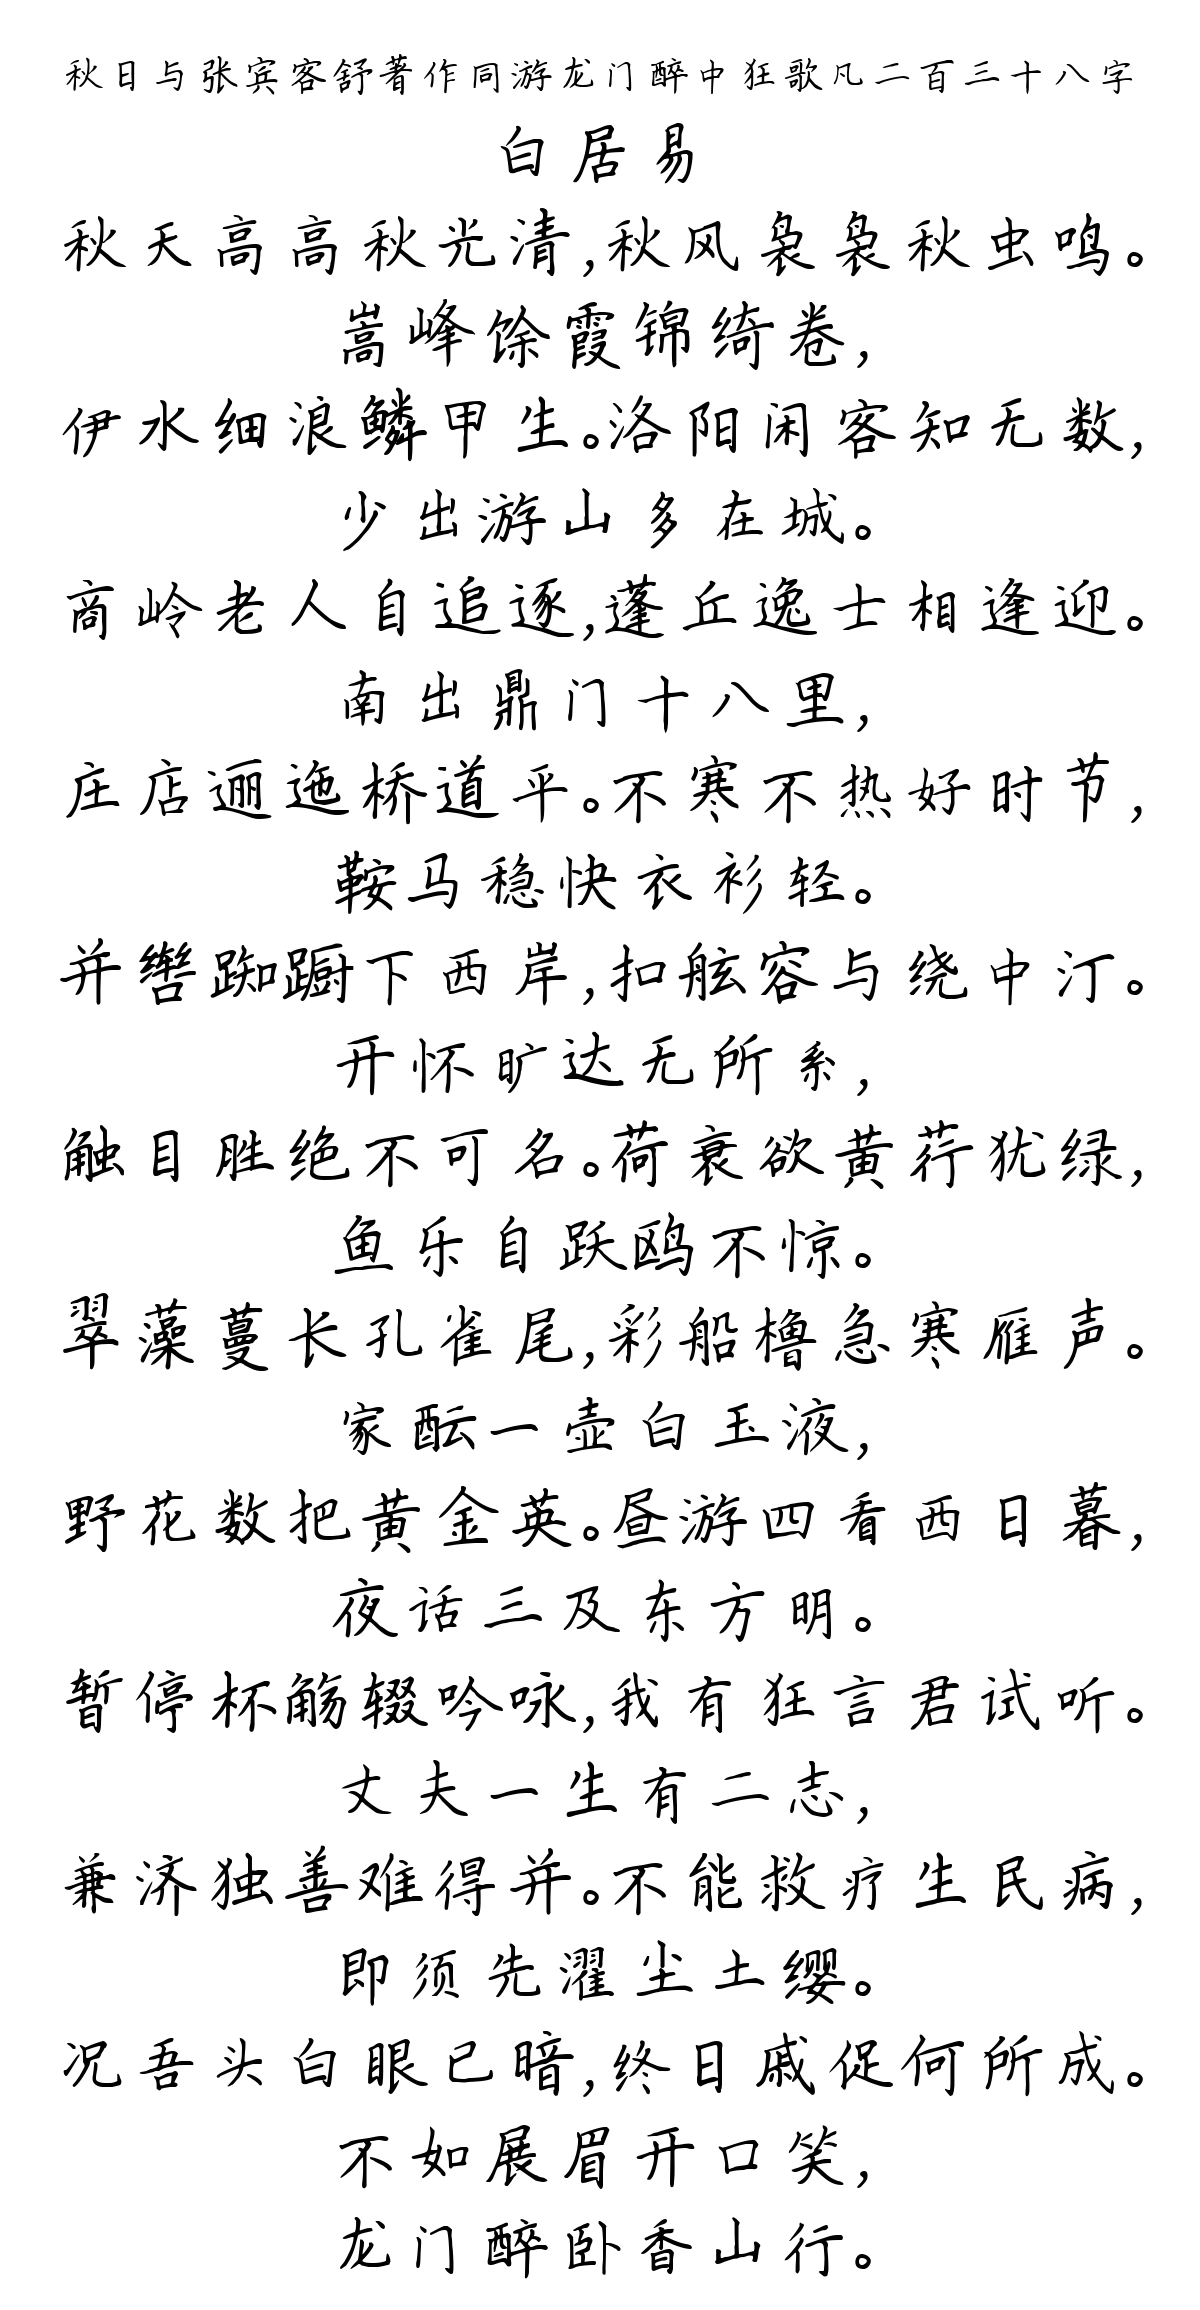 秋日与张宾客舒著作同游龙门醉中狂歌凡二百三十八字
白居易
秋天高高秋光清,秋风袅袅秋虫鸣。
嵩峰馀霞锦绮卷,
伊水细浪鳞甲生。洛阳闲客知无数,
少出游山多在城。
商岭老人自追逐,蓬丘逸士相逢迎。
南出鼎门十八里,
庄店逦迤桥道平。不寒不热好时节,
鞍马稳快衣衫轻。
并辔踟蹰下西岸,扣舷容与绕中汀。
开怀旷达无所系,
触目胜绝不可名。荷衰欲黄荇犹绿,
鱼乐自跃鸥不惊。
翠藻蔓长孔雀尾,彩船橹急寒雁声。
家酝一壶白玉液,
野花数把黄金英。昼游四看西日暮,
夜话三及东方明。
暂停杯觞辍吟咏,我有狂言君试听。
丈夫一生有二志,
兼济独善难得并。不能救疗生民病,
即须先濯尘土缨。
况吾头白眼已暗,终日戚促何所成。
不如展眉开口笑,
龙门醉卧香山行。